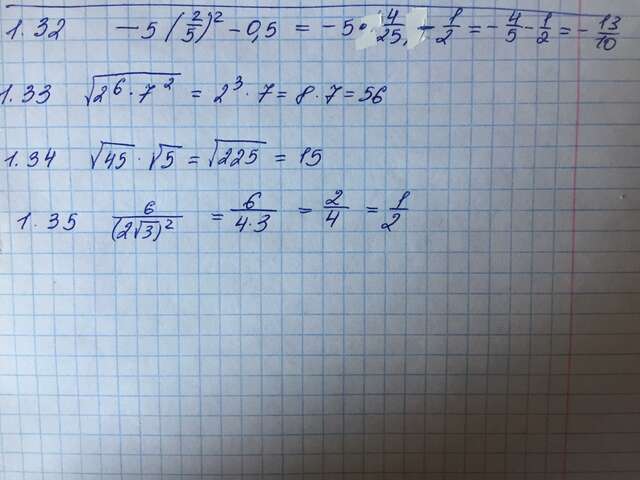 1.32 -5(2/5)² - 0,5 = -5 · 4/25, - 1/2 = - 4/5 - 1/2 = - 13/10
1.33 √(2⁶ · 7²) = 2³ · 7 = 8 · 7 = 56
1.34 √45 · √5 = √225 = 15
1.35 6/(2√3)² = 6/(4·3) = 2/4 = 1/2